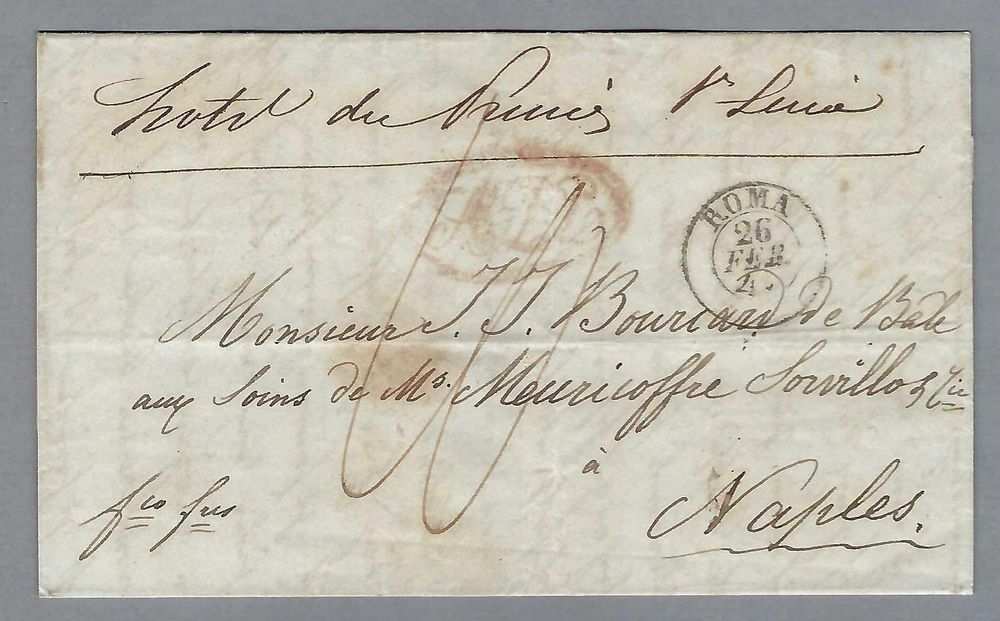 hotel du
ROMA
26
FEB.
4
Monsieur J. J. Bourcard de Bale
aux soins de Ms. Meuricoffre Sorvillo & Cie
à
Naples.
fco fres